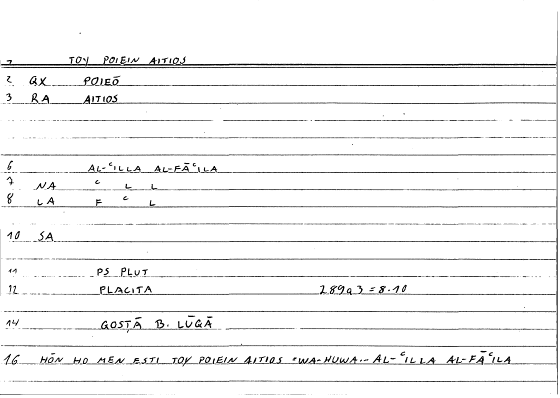 1 TOY POIEIN AITIOS
2 QX POIEŌ
3 RA AITIOS
6 AL-ʿILLA AL-FĀʿILA
7 NA ʿ L L
8 LA F ʿ L
10 SA
11 PS PLUT
12 PLACITA 289a3=8.10
14 QOSṬĀ B. LŪQĀ
16 HŌN HO MEN ESTI TOY POIEIN AITIOS *WA-HUWA.- AL-ʿILLA AL-FĀʿILA